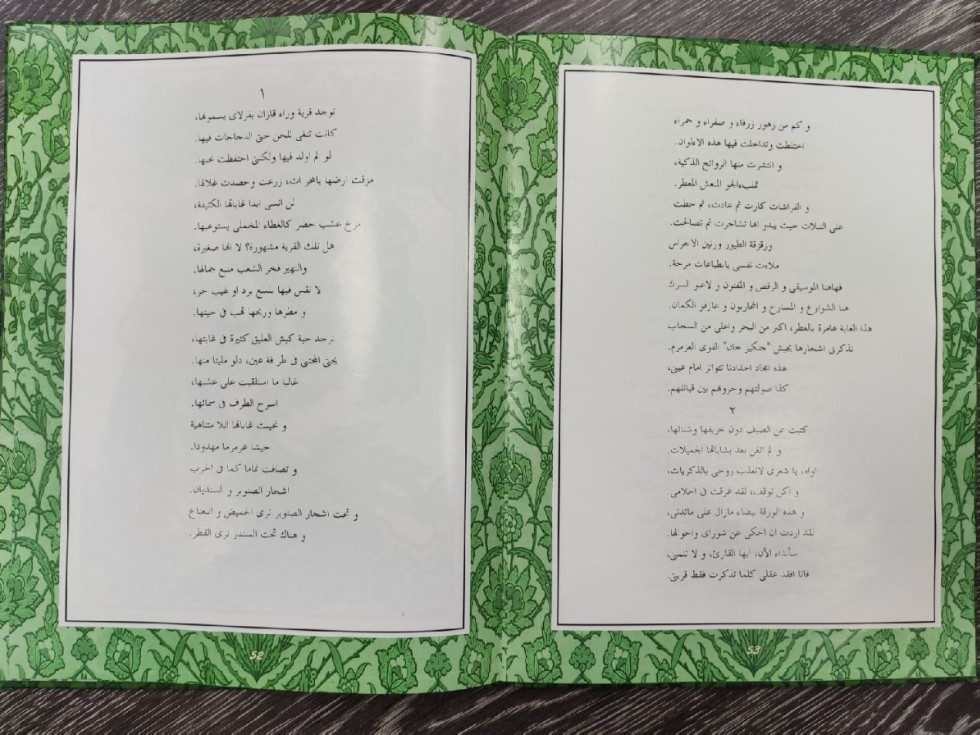 ١
توجد قرية وراء قازان بقرلاى يسمونها،
كانت تنغى للمحن حتى الدجاجات فيها.
لو لم اولد فيها ولكنى احتفظت بحبها.
مزقت ارضها بالمحراث، زرعت وحصدت غلالها.
لن انسى ابدا غاباتها الكثيفة،
مرج عشب خضر كالغطاء المخملى يستوعبها.
هل تلك القرية مشهورة؟ لا انها صغيرة،
والنهير فخر الشعب منبع جمالها.
لا نقس فيها بلسع برد او لهيب حر،
و مطرها وريحها تهب فى حينها.
نرجد حبة كبش العليق كثيرة فى غابتها،
يجنى المجتنى فى طرفة عين، دلو مليئا منها.
غالبا ما استلقيت على عشبها،
اسرح الطرف فى سمائها.
و تخيلت غاباتها اللا متناهية
جيشا عرمرما مهدودا.
و تصافت تماما كما فى الحرب
اشجار الصنوبر و السنديان.
و تحت اشجار الصنوبر ترى الحميض و النعناع
و هناك تحت السندر ترى الفطر.
52
و كم من زهور زرقاء و صفراء و حمراء
اختلطت وتداخلت فيها هذه الالوان.
و انتشرت منها الروائح الذكية،
تملىء الجو المنعش المعطر.
و الفراشات كارت ثم عادت، ثم حطت
على النبلات حيث يبدو انها تشاجرت ثم تصالحت.
وزقزقة الطيور ورنين الاجراس
ملأت نفسى بانطباعات مرحة.
فهاهنا الموسيقى و الرقص و المفنون و لاعبو السرك
هنا الشوارع و المسارح و المحاربون و عازفو الكمان.
هذا الغابة عامرة بالعطر، اكبر من البحر واعلى من السحاب
تذكرنى اشجارها بجيش "جنكيز خان" القوى العرمرم.
هذه امجاد اجدادنا تتواتر امام عينى،
كذا صولتهم وحروهم بين قبائلهم.
٢
كتبت عن الصيف دون خريفها وشتائها،
و لم اتغن بعد بشاباتها الجميلات.
اواه، يا شعرى لاتعذب روحى بالذكريات،
و اكن توقف، لقد غرقت فى احلامى.
و هذه الورقة بيضاء مازال على مائدتى،
لقد اردت ان احكى عن شوراى واحوالها.
سأبداء الأن، ايها القارئ، و لا تلمنى،
فانا افقد عقلى كلما تذكرت فقط قريتى.
53